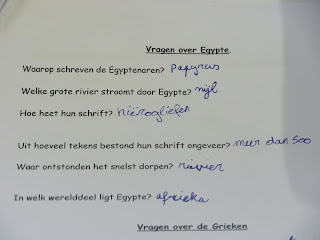 Vragen over Egypte.
Waarop schreven de Egyptenaren? Papyrus
Welke grote rivier stroomt door Egypte? nijl
Hoe heet hun schrift? hiërogliefen
Uit hoeveel tekens bestond hun schrift ongeveer? meer dan 500
Waar ontstonden het snelst dorpen? rivier
In welk werelddeel ligt Egypte? afrieka
Vragen over de Grieken